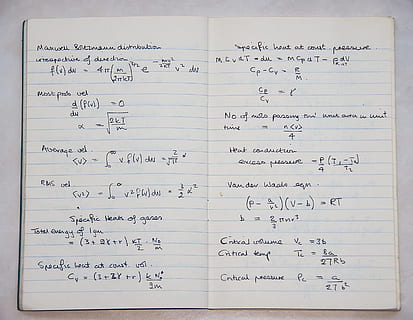 Maxwell Boltzmann distribution
irrespective of direction
f(v) dv = 4π (m/2πkT)^3/2 e^-mv²/2kT v² dv
Most prob vel
d/dv (f(v)) = 0
α = √(2kT/m)
Average vel
⟨v⟩ = ∫₀^∞ v f(v) dv = 2/√π α
RMS vel
⟨v²⟩ = ∫₀^∞ v² f(v) dv = 3/2 α²
Specific Heats of gases
Total energy of 1gm
= (3 + 2z + r) kT/2 · No/m
Specific heat at const. vol.
Cv = (3 + 2z + r) k No/2m
Specific heat at const. pressure.
M Cv dT = du = M Cp dT - p dv
Cp - Cv = R/M
Cp/Cv = γ
No of mols passing thro' unit area in unit
time = n⟨v⟩/4
Heat conduction
excess pressure = P/4 (T₁ - T₂)/T₂
Van der Waals eqn.
(P - a/v²)(V - b) = RT
b = 2/3 π n r³
Critical volume Vc = 3b
Critical temp Tc = 8a/27Rb
Critical pressure Pc = a/27b²